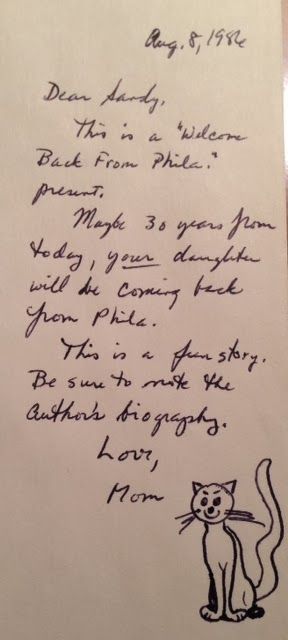 Aug. 8, 1986
Dear Sandy,
This is a "Welcome
Back From Phila."
present.
Maybe 30 years from
today, your daughter
will be coming back
from Phila.
This is a fun story.
Be sure to note the
author's biography.
Love,
Mom